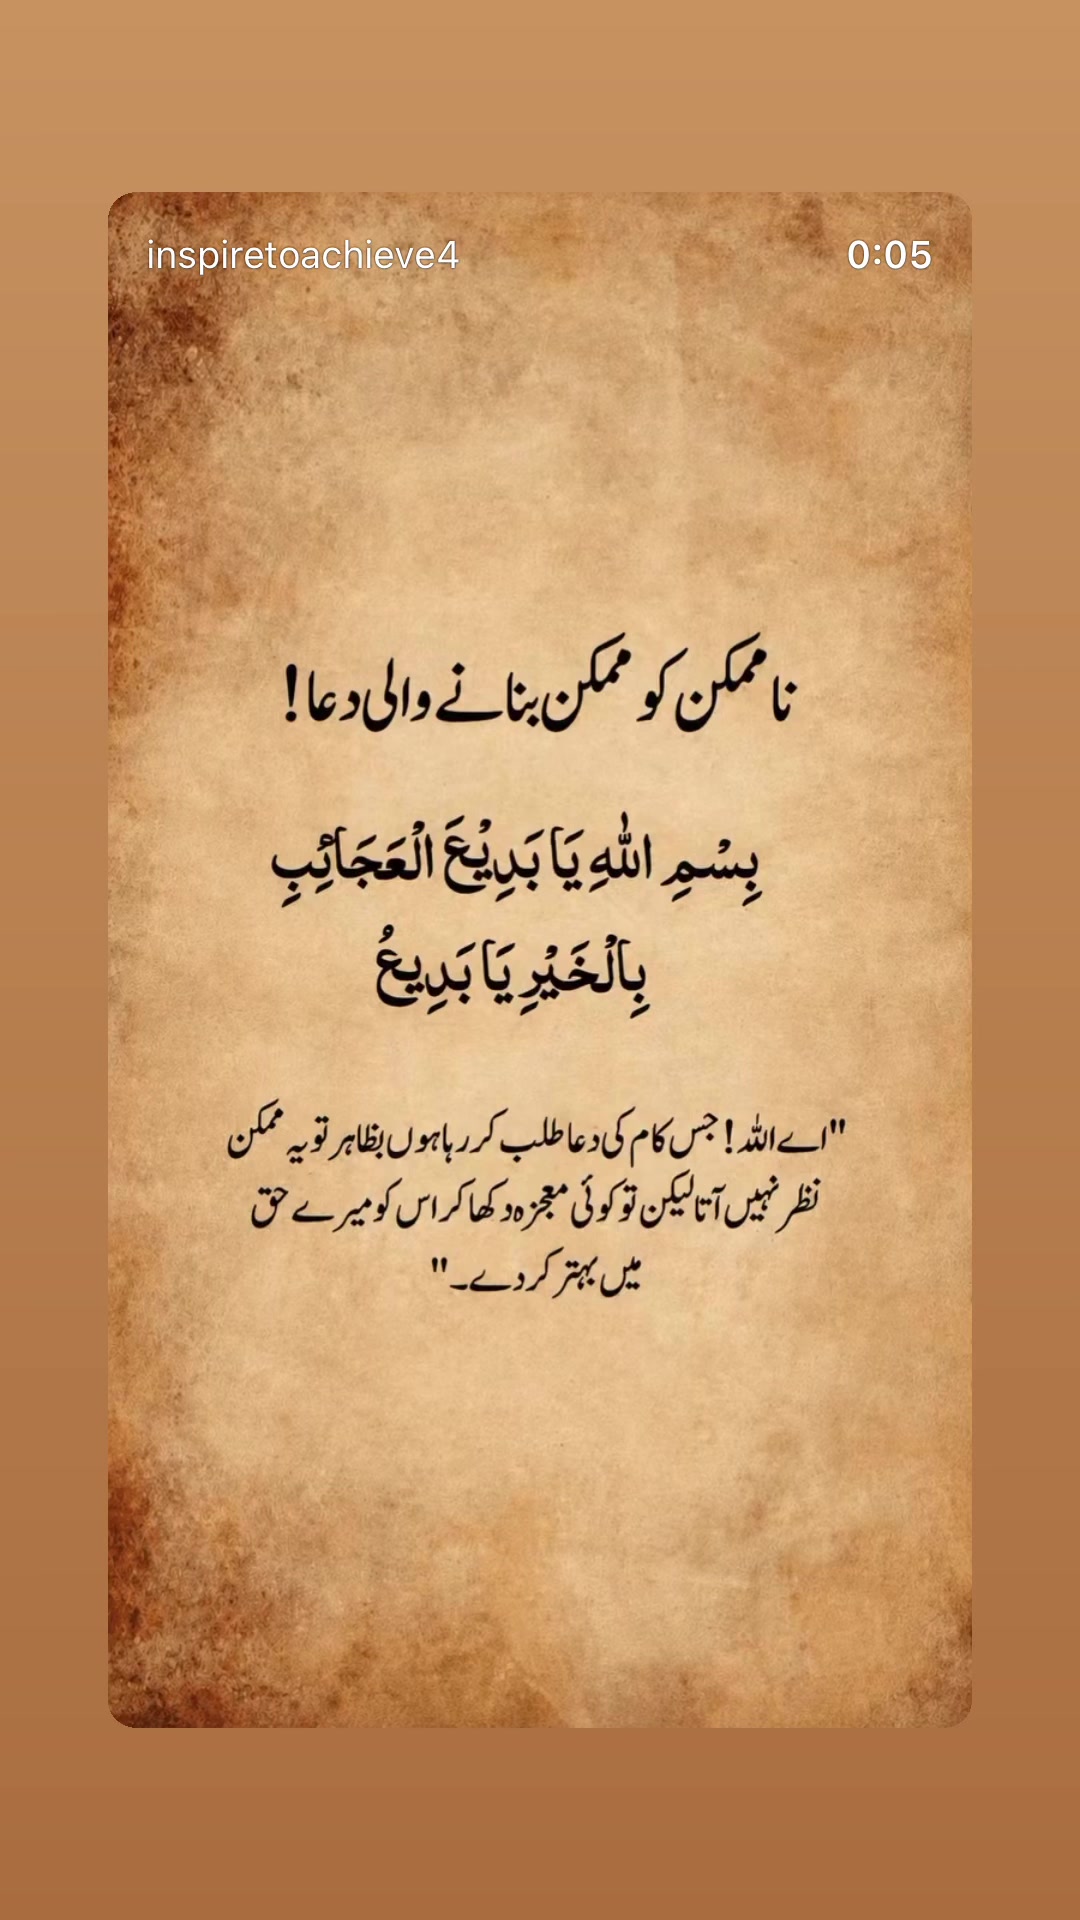 inspiretoachieve4
0:05
نا ممکن کو ممکن بنانے والی دعا!
بِسْمِ اللهِ يَا بَدِيْعَ الْعَجَائِبِ
بِالْخَيْرِ يَا بَدِيعُ
"اے اللہ! جس کام کی دعا طلب کر رہا ہوں بظاہر تو یہ ممکن
نظر نہیں آتا لیکن تو کوئی معجزہ دکھا کر اس کو میرے حق
میں بہتر کر دے۔"